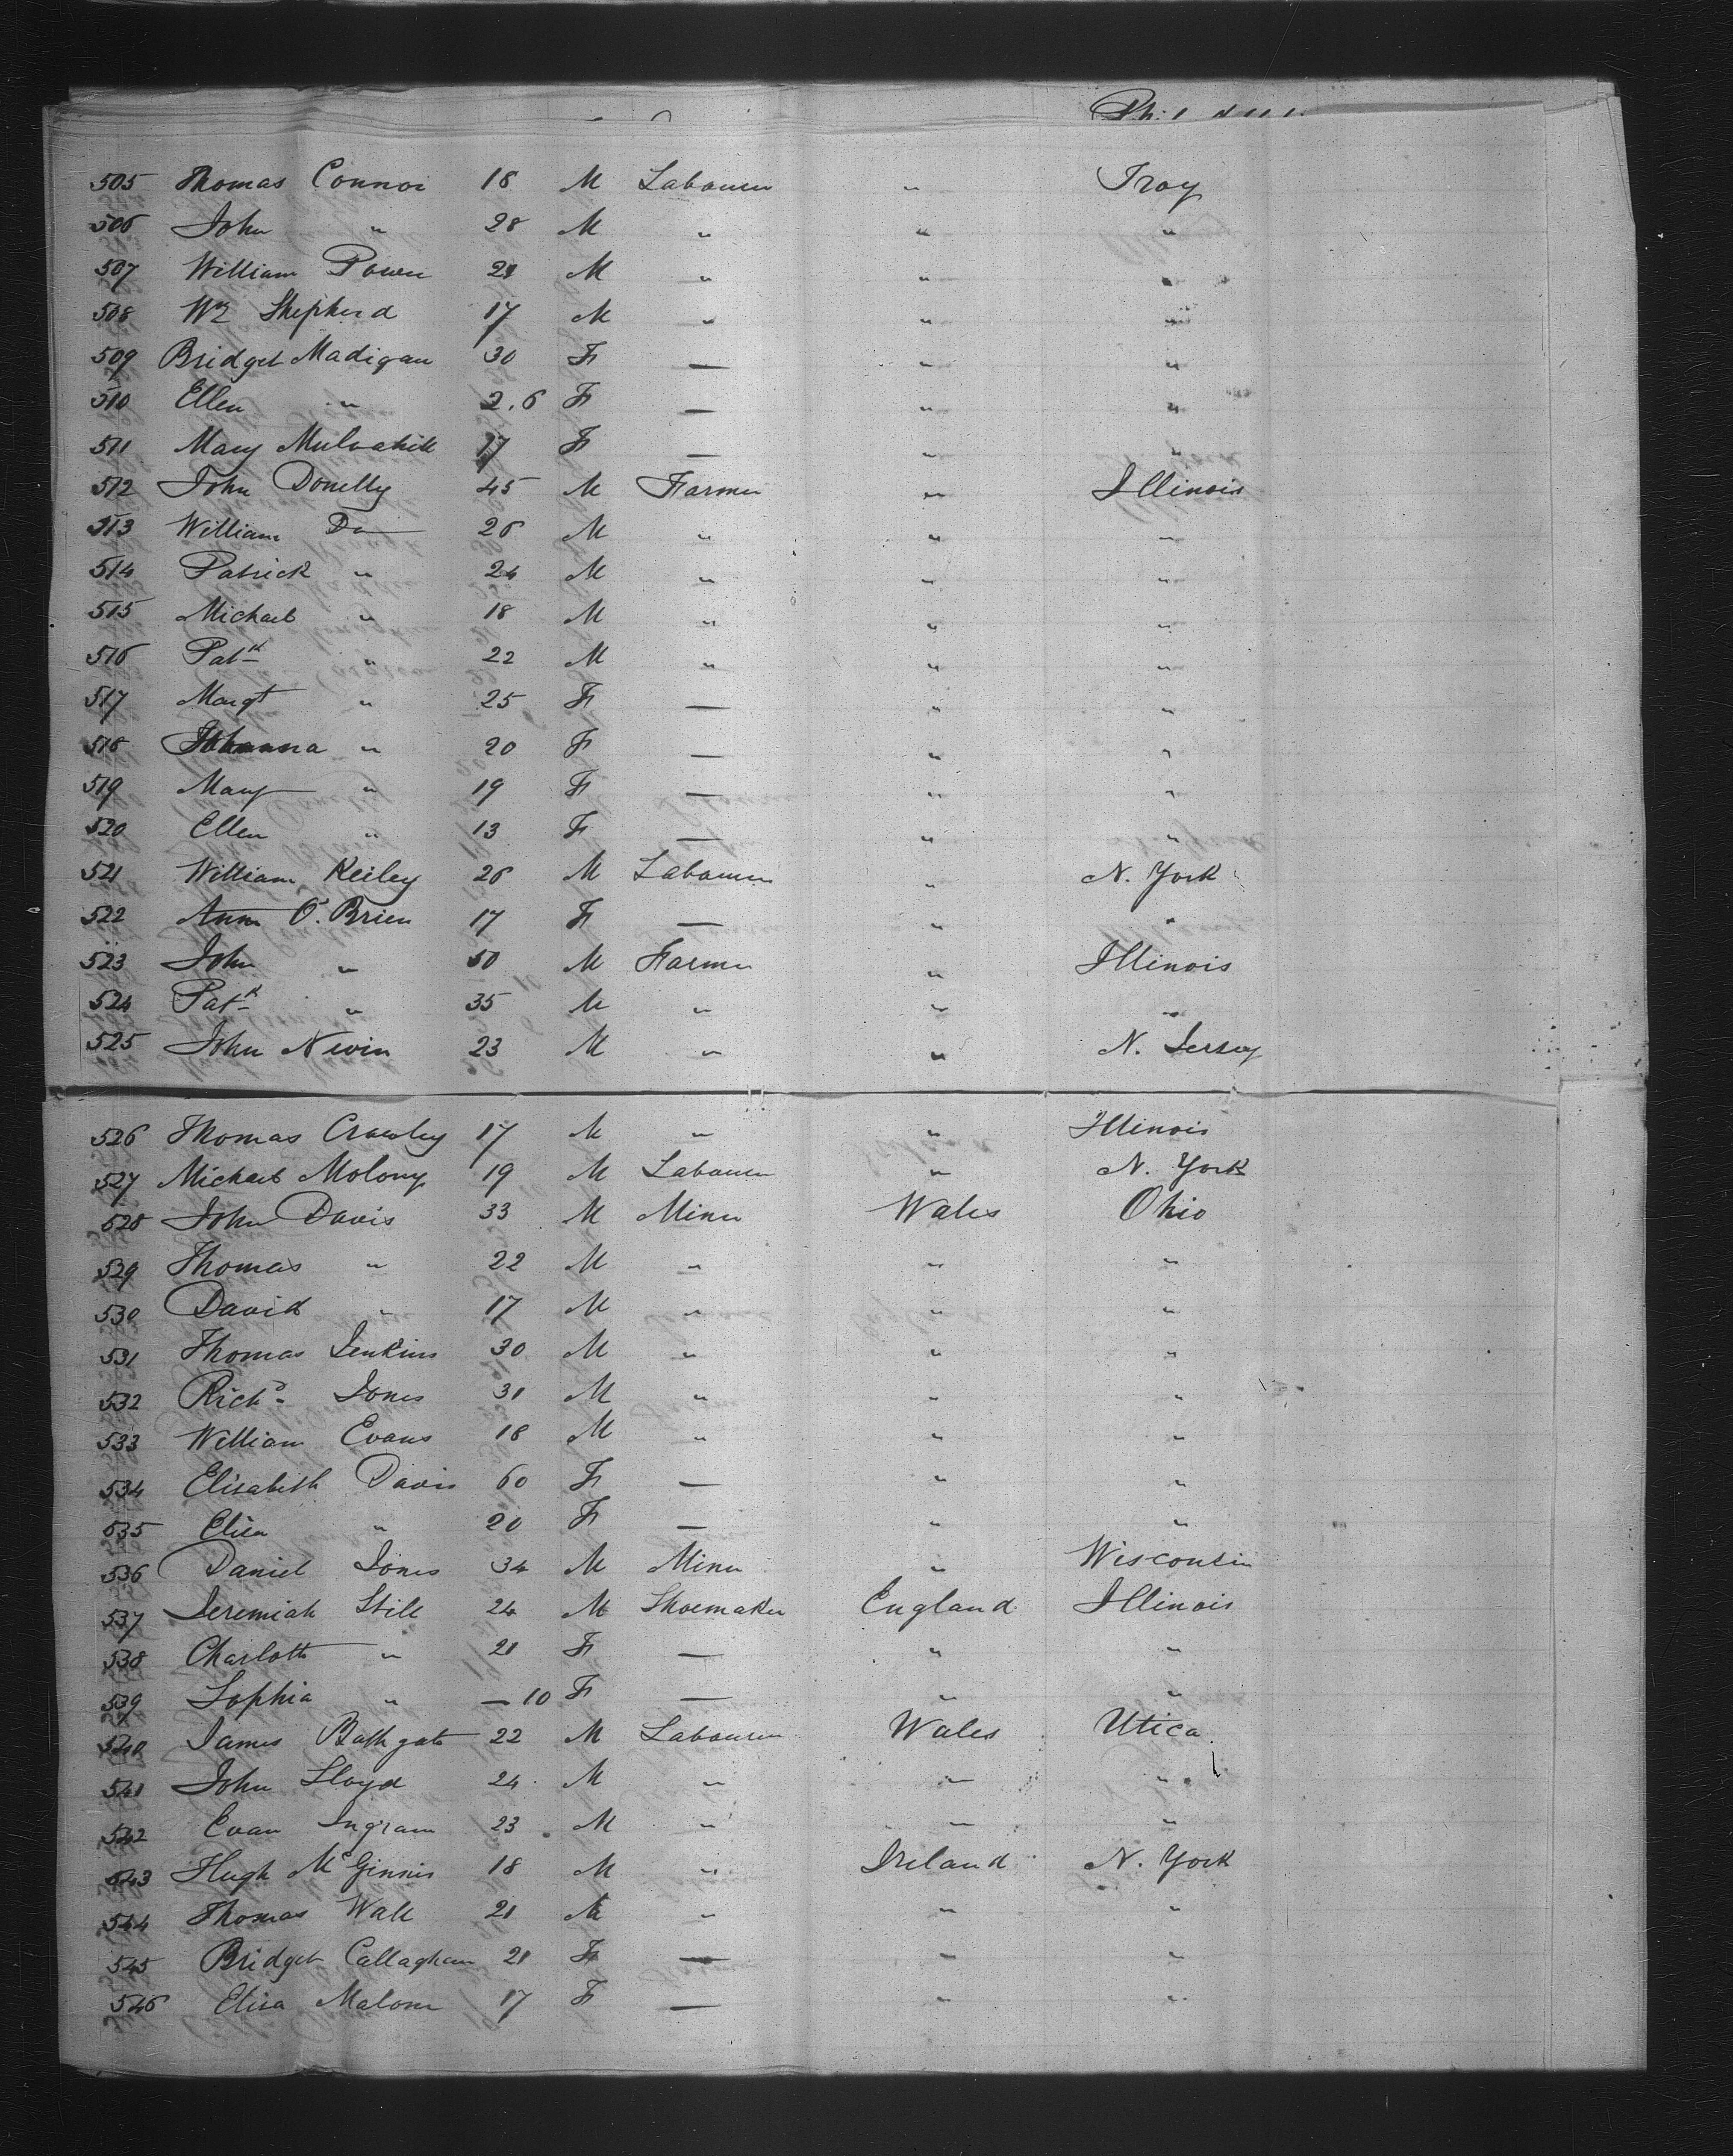 505 Thomas Connor 18 M Labourer " Troy
506 John " 28 M " " "
507 William Power 21 M " " "
508 Wm Shepherd 17 M " " "
509 Bridget Madigan 30 F — " "
510 Ellen " 2.6 F — " "
511 Mary Mulvahill 17 F — " "
512 John Donelly 45 M Farmer " Illinois
513 William Do 26 M " " "
514 Patrick " 24 M " " "
515 Michael " 18 M " " "
516 Patk " 22 M " " "
517 Margt " 25 F — " "
518 Johanna " 20 F — " "
519 Mary " 19 F — " "
520 Ellen " 13 F — " "
521 William Keiley 26 M Labourer " N. York
522 Ann O'Brien 17 F — " "
523 John " 50 M Farmer " Illinois
524 Patk " 35 M " " "
525 John Nevin 23 M " " N. Jersey
526 Thomas Crowley 17 M " " Illinois
527 Michael Molony 19 M Labourer " N. York
528 John Davis 33 M Miner Wales Ohio
529 Thomas " 22 M " " "
530 David " 17 M " " "
531 Thomas Jenkins 30 M " " "
532 Richd Jones 31 M " " "
533 William Evans 18 M " " "
534 Elisabeth Davis 60 F — " "
535 Elisa " 20 F — " "
536 Daniel Jones 34 M Miner " Wisconsin
537 Jeremiah Still 24 M Shoemaker England Illinois
538 Charlotte " 21 F — " "
539 Sophia " — 10 F — " "
540 James Bathgate 22 M Labourer Wales Utica
541 John Lloyd 24 M " " "
542 Evan Ingram 23 M " " "
543 Hugh McGinnis 18 M " Ireland N. York
544 Thomas Wall 21 M " " "
545 Bridget Callaghan 21 F — " "
546 Elisa Malone 17 F — " "